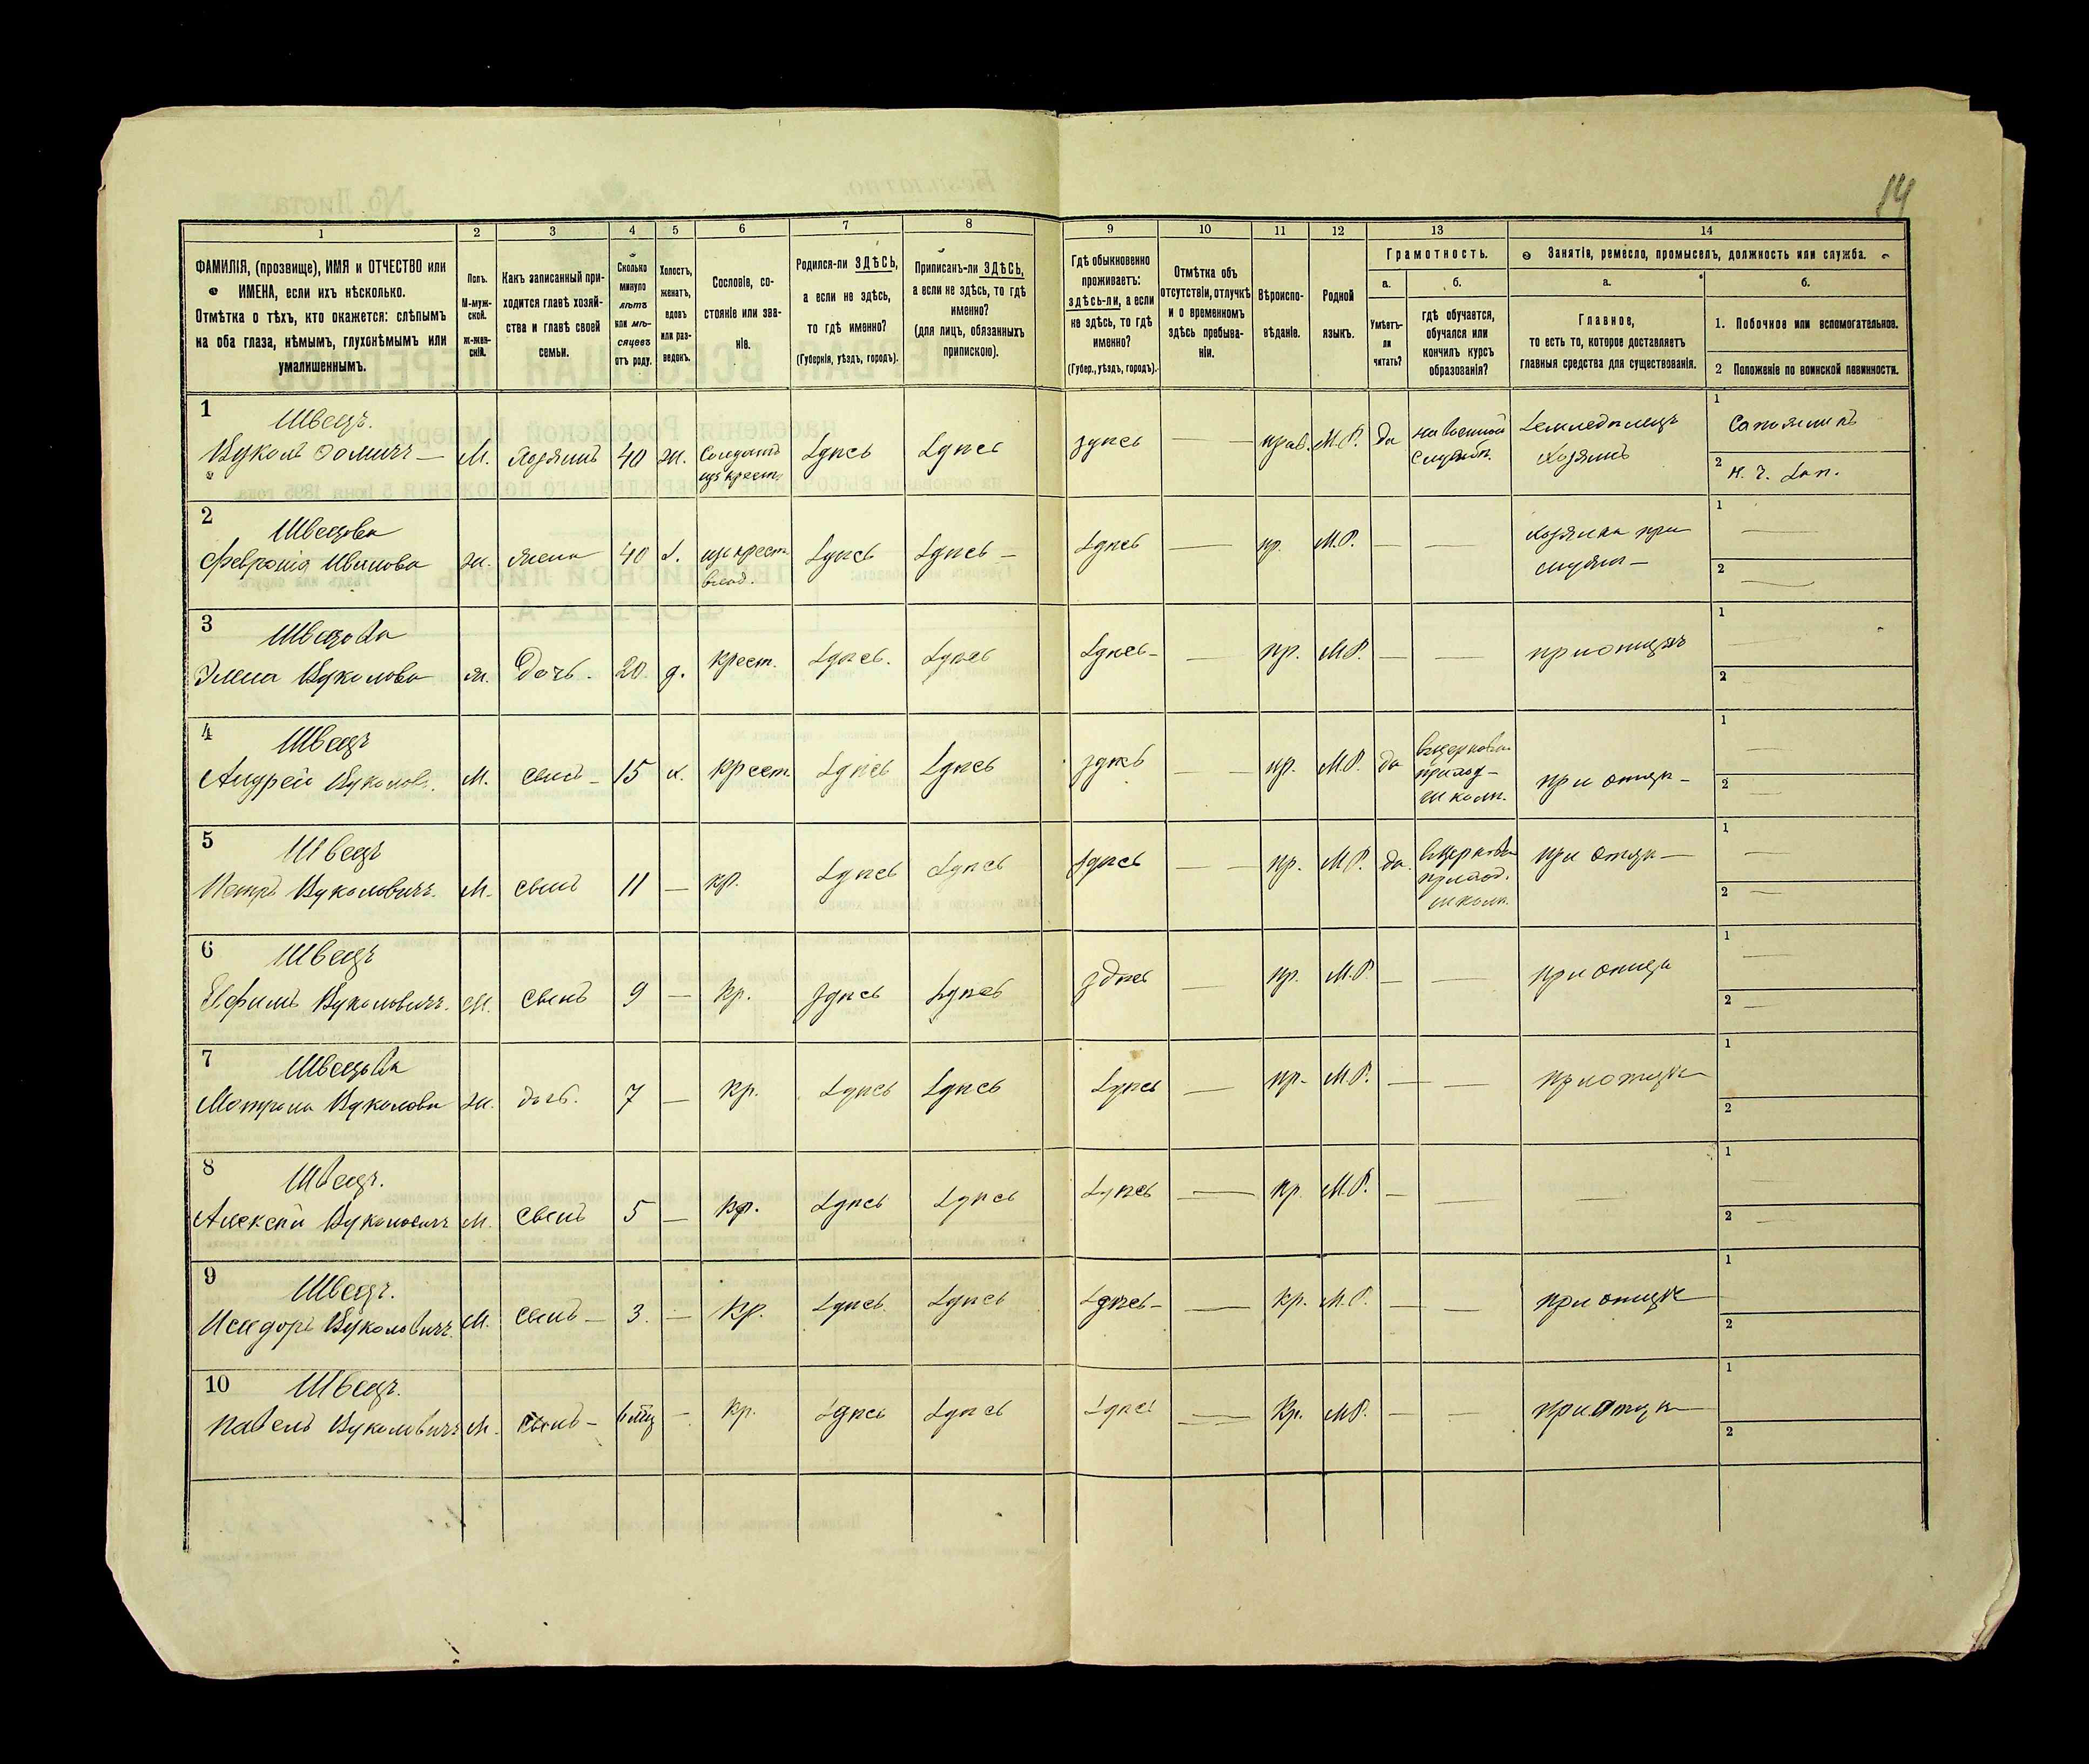 14
1
2
3
4
5
6
7
8
9
10
11
12
13
14
ФАМИЛІЯ, (прозвище), ИМЯ и ОТЧЕСТВО или
ИМЕНА, если ихъ нѣсколько.
Отмѣтка о тѣхъ, кто окажется: слѣпымъ
на оба глаза, нѣмымъ, глухонѣмымъ или
умалишеннымъ.
Полъ.
М-муж-
ской.
Ж-жен-
скій.
Какъ записанный при-
ходится главѣ хозяй-
ства и главѣ своей
семьи.
Сколько
минуло
лѣтъ
или мѣ-
сяцевъ
отъ роду.
Холостъ,
женатъ,
вдовъ
или раз-
веденъ.
Сословіе, со-
стояніе или зва-
ніе.
Родился-ли ЗДѢСЬ,
а если не здѣсь,
то гдѣ именно?
(Губернія, уѣздъ, городъ).
Приписанъ-ли ЗДѢСЬ,
а если не здѣсь, то гдѣ
именно?
(для лицъ, обязанныхъ
припискою).
Гдѣ обыкновенно
проживаетъ:
здѣсь-ли, а если
не здѣсь, то гдѣ
именно?
(Губер., уѣздъ, городъ).
Отмѣтка объ
отсутствіи, отлучкѣ
и о временномъ
здѣсь пребыва-
ніи.
Вѣроиспо-
вѣданіе.
Родной
языкъ.
Грамотность.
а.
Умѣетъ-
ли
читать?
б.
гдѣ обучается,
обучался или
кончилъ курсъ
образованія?
Занятіе, ремесло, промыселъ, должность или служба.
а.
Главное,
то есть то, которое доставляетъ
главныя средства для существованія.
б.
1. Побочное или вспомогательное.
2 Положеніе по воинской повинности.
1
Швецъ.
Вуколъ Фомичъ —
М. Хозяинъ 40 ж. Солдатъ
изъ крест.
здѣсь здѣсь здѣсь — — прав. М.Р. да на военной
службѣ.
Земледѣлецъ
Хозяинъ
1
Сапожникъ
2
н. ч. зап.
2
Швецова
Февронія Иванова ж. жена 40 з. изъ крест.
влад.
здѣсь здѣсь — здѣсь — пр. М.Р. — —
хозяйка при
мужѣ —
1 —
2 —
3
Швецова
Вуколова ж. дочь. 20 д. крест. здѣсь. здѣсь здѣсь — — пр. М.Р. — — при отцѣ
1 —
2 —
4
Швецъ
Андрей Вуколов. М. сынъ — 15 х. крест. здѣсь здѣсь здѣсь — — пр. М.Р. да
въ церковно
приход —
школѣ.
при отцѣ —
1 —
2 —
5
Швецъ
Петръ Вуколовичъ. М. сынъ 11 — кр. здѣсь здѣсь здѣсь — — пр. М.Р. да.
въ церковно
приход.
школѣ.
при отцѣ —
1 —
2 —
6
Швецъ
Ефимъ Вуколовичъ. М. сынъ 9 — кр. здѣсь здѣсь здѣсь — пр. М.Р. — — при отцѣ
1 —
2 —
7
Швецова
Матрона Вуколова ж. дочь. 7 — кр. здѣсь здѣсь здѣсь — пр. М.Р. — — при отцѣ
1
2
8
Швецъ.
Алексѣй Вуколовичъ М. сынъ 5 — кр. здѣсь здѣсь здѣсь — пр. М.Р. — — —
1 —
2 —
9
Швецъ.
Исидоръ Вуколовичъ. М. сынъ — 3. — кр. здѣсь здѣсь здѣсь — — пр. М.Р. — — при отцѣ
1
2
10
Швецъ.
Павелъ Вуколовичъ М. сынъ — — кр. здѣсь здѣсь здѣсь — пр. М.Р. — — при отцѣ
1
2